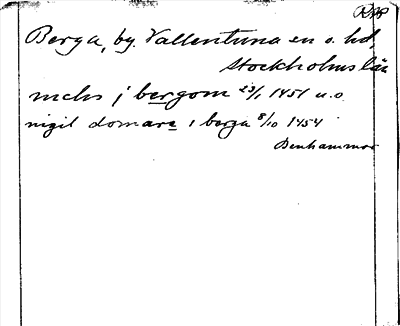 Berga, by. Vallentuna sn o. hd,
Stockholms län
j bergom 23/1 1451 u.o.
nigil domara i berga 8/10 1454
Benhammar